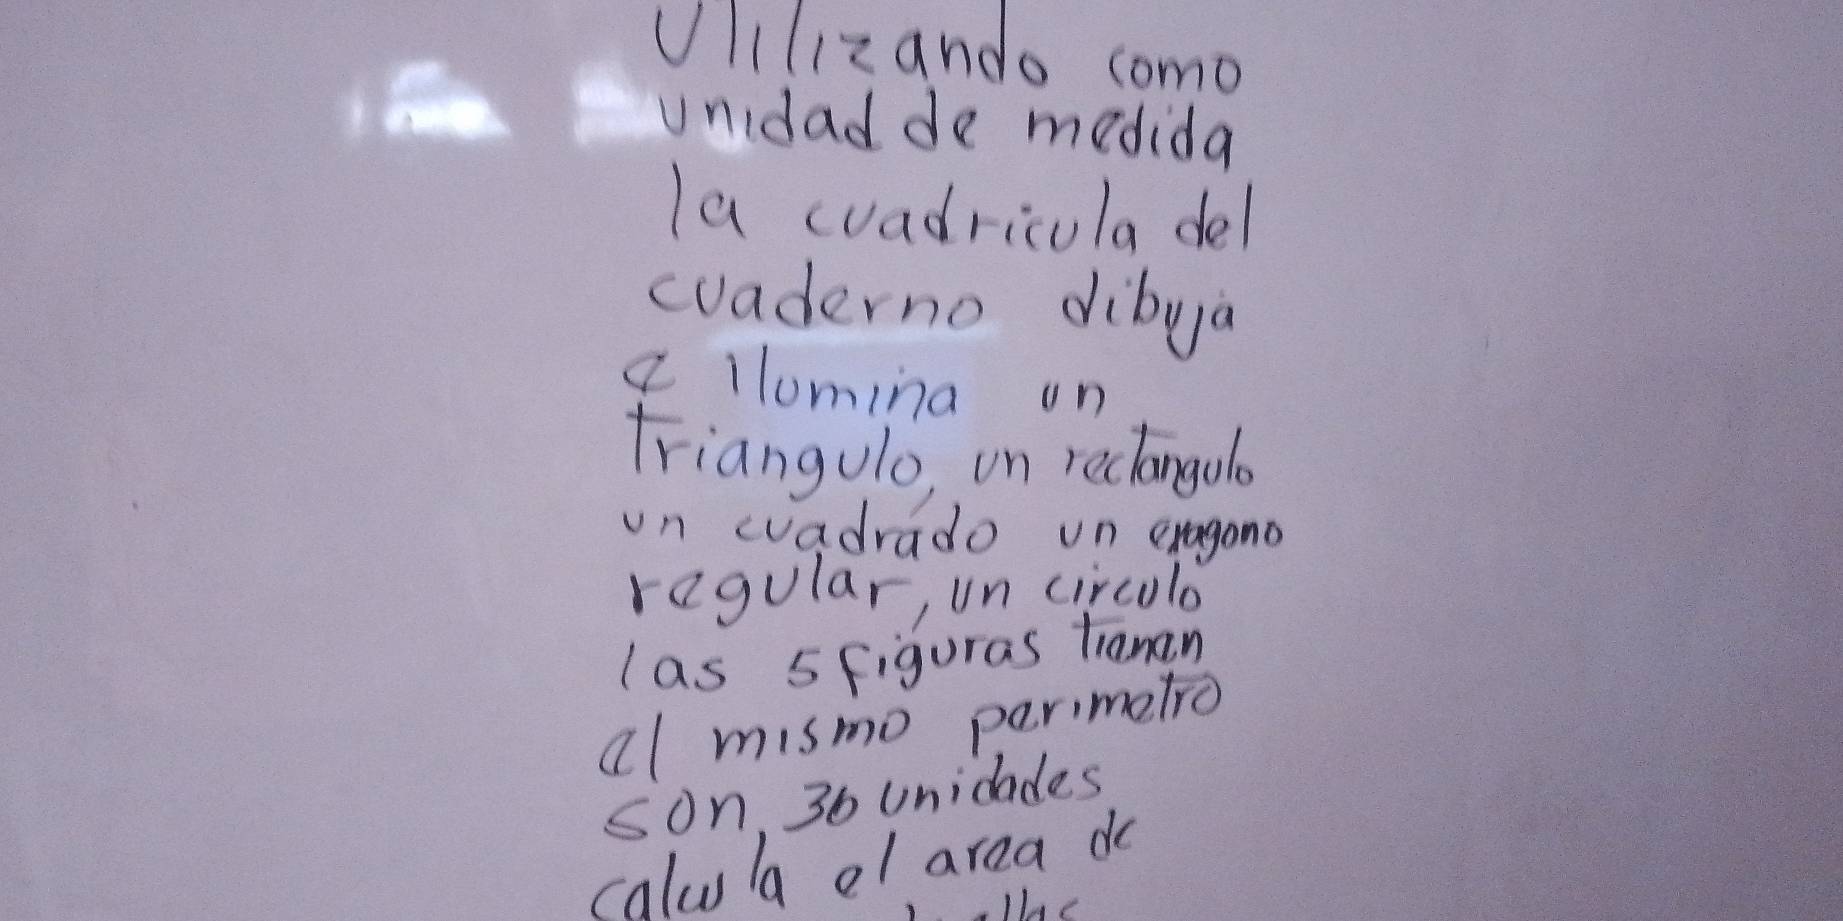 Utilizando como
unidad de medida
la cuadricula del
cuaderno dibuja
e ilumina un
triangulo, un rectangulo
un cuadrado un exagono
regular, un circulo
las 5 figuras tienen
el mismo perimetro
son, 36 unidades
calcula el area de